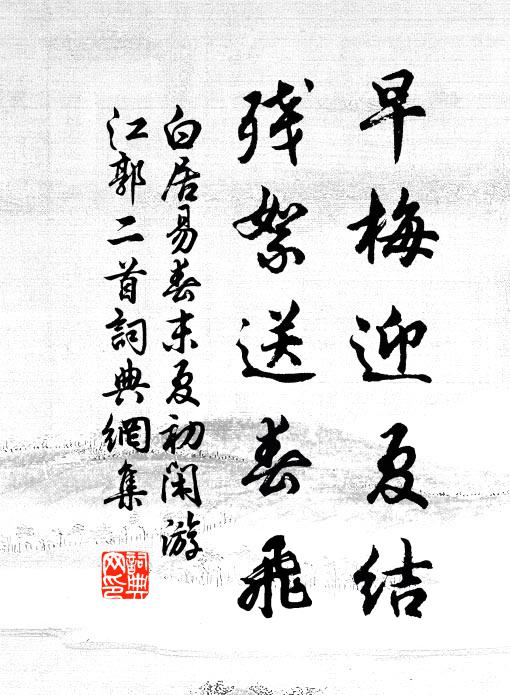 早梅迎夏结
残絮送春飛
白居易春末夏初闲游
江郭二首詞典網集
詞典
网印